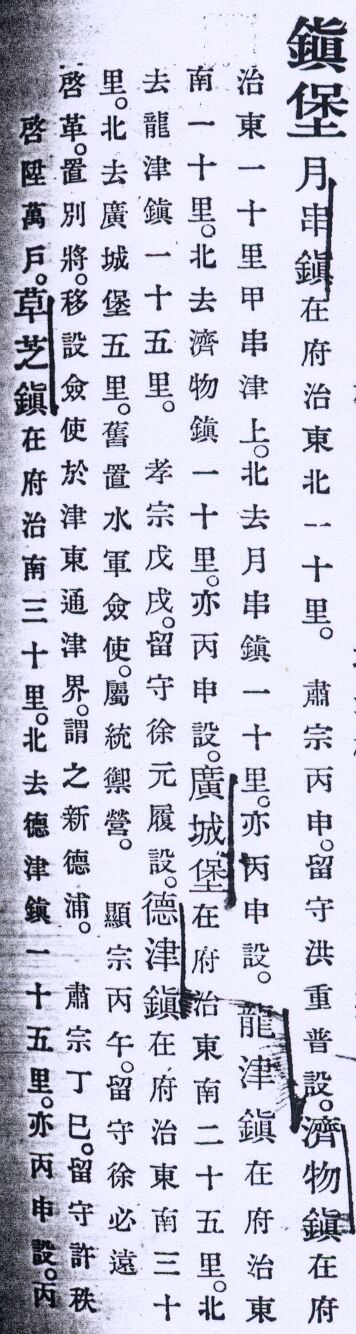 鎭堡 月串鎭在府治東北一十里。 肅宗丙申。留守洪重普設。濟物鎭在府
治東一十里甲串津上。北去月串鎭一十里。亦丙申設。龍津鎭在府治東
南一十里。北去濟物鎭一十里。亦丙申設。廣城堡在府治東南二十五里。北
去龍津鎭一十五里。 孝宗戊戌。留守徐元履設。德津鎭在府治東南三十
里。北去廣城堡五里。舊置水軍僉使。屬統禦營。 顯宗丙午。留守徐必遠
啓革。置別將。移設僉使於津東通津界。謂之新德浦。 肅宗丁巳。留守許秩
啓陞萬戶。草芝鎭在府治南三十里。北去德津鎭一十五里。亦丙申設。丙